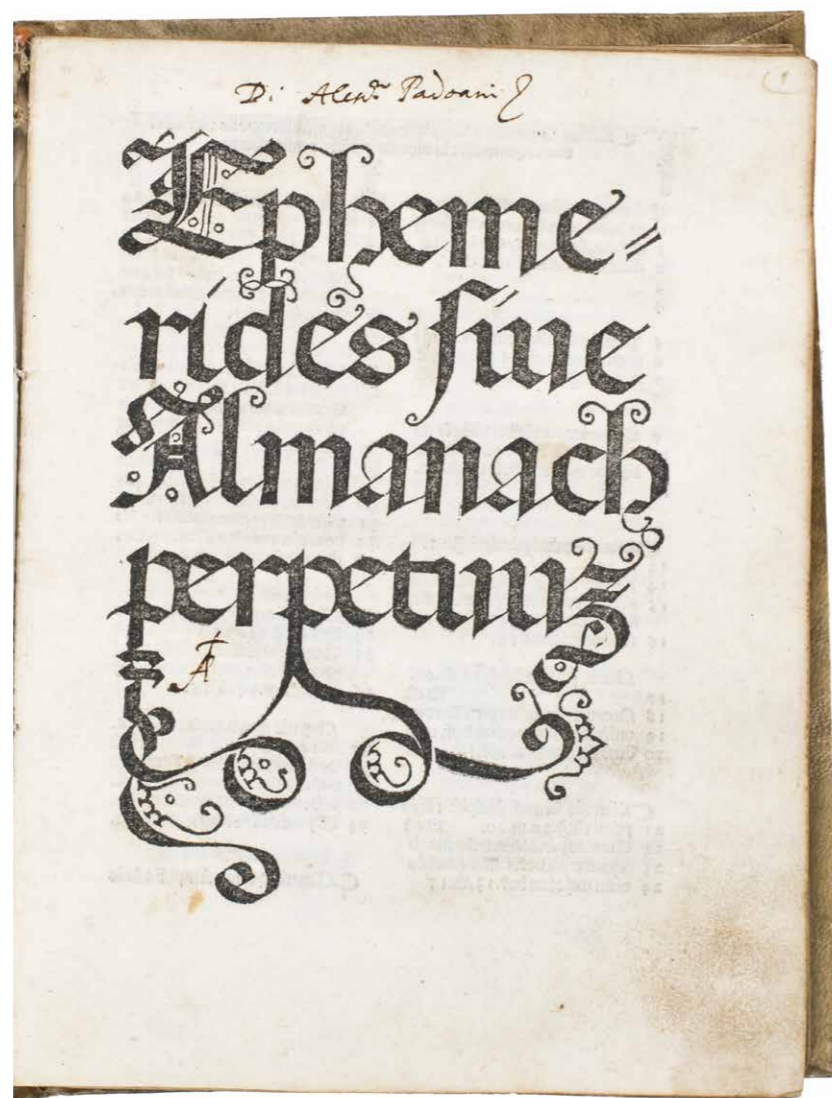 Di Aless.ro Padoani
Epheme=
rides siue
Almanach
perpetuuz